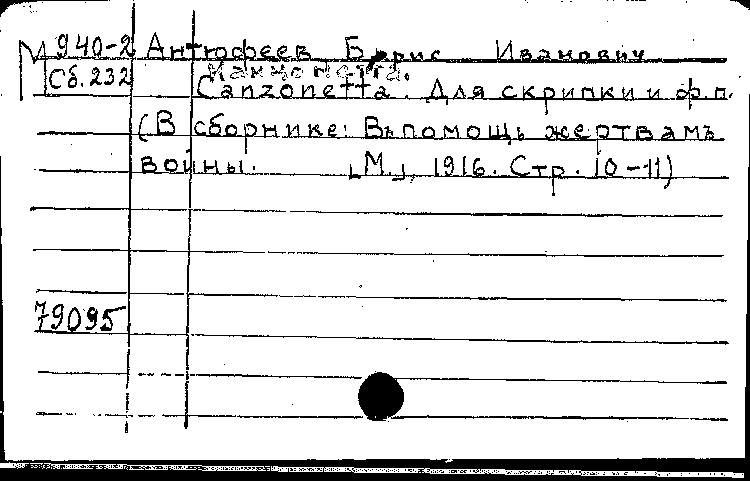 М 940-2 Антюфеев Борис Иванович
Сб. 232 Канцонетта.
Canzonetta. Для скрипки и ф.п.
(В сборнике: Въ помощь жертвамъ
войны. [М.], 1916. Стр. 10-11)
79095